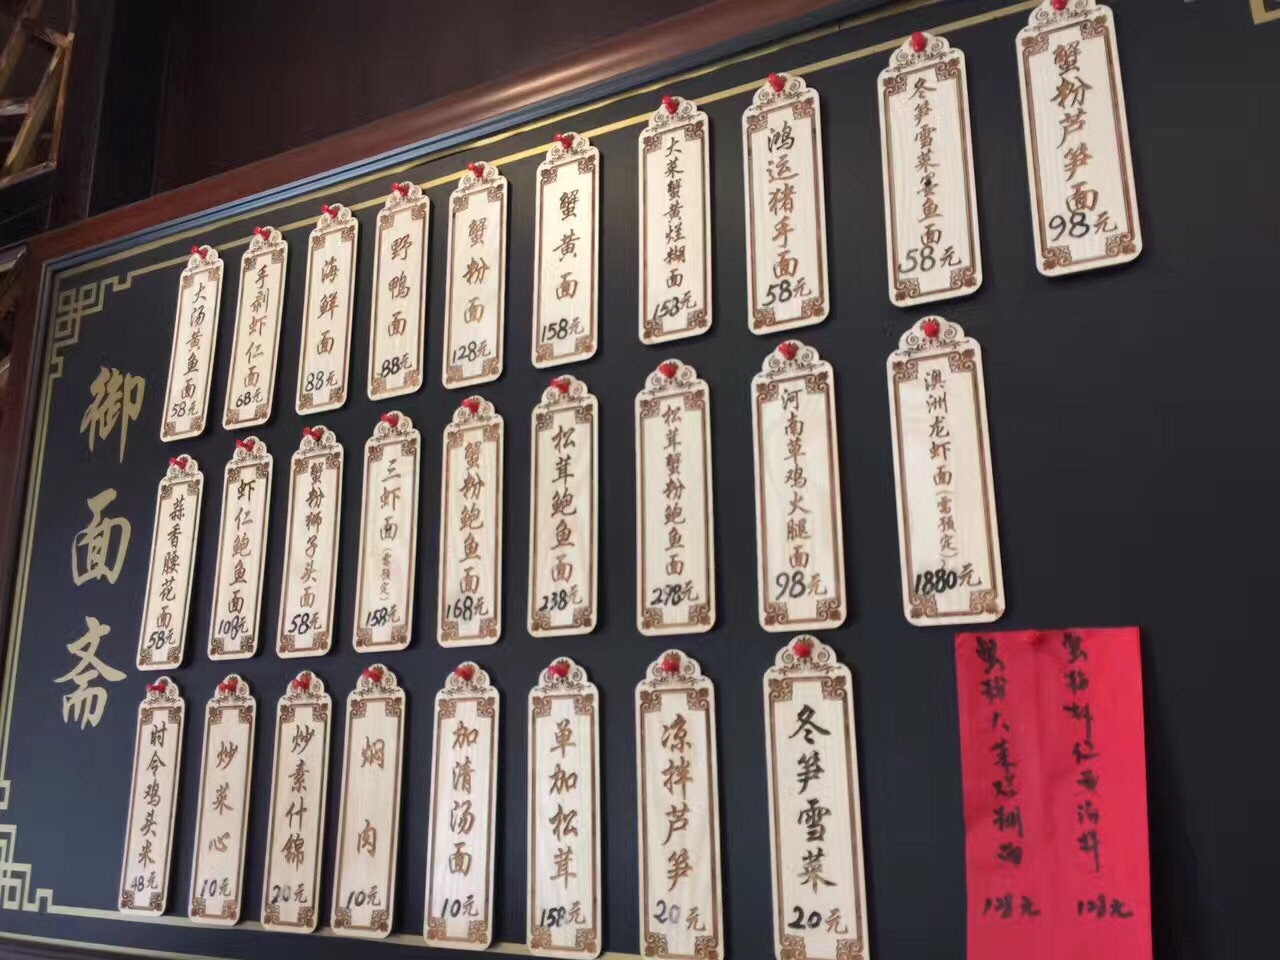 御面斋
大汤黄鱼面 58元
手剥虾仁面 68元
海鲜面 88元
野鸭面 88元
蟹粉面 128元
蟹黄面 158元
大菜蟹黄烂糊面 158元
鸿运猪手面 58元
冬笋雪菜墨鱼面 58元
蟹粉芦笋面 98元
蒜香腰花面 58元
虾仁鲍鱼面 108元
蟹粉狮子头面 58元
三虾面(需预定) 158元
蟹粉鲍鱼面 168元
松茸鲍鱼面 238元
松茸蟹粉鲍鱼面 298元
河南草鸡火腿面 98元
澳洲龙虾面(需预定) 1880元
时令鸡头米 48元
炒菜心 10元
炒素什锦 20元
焖肉 10元
加清汤面 10元
单加松茸 158元
凉拌芦笋 20元
冬笋雪菜 20元
128元
128元